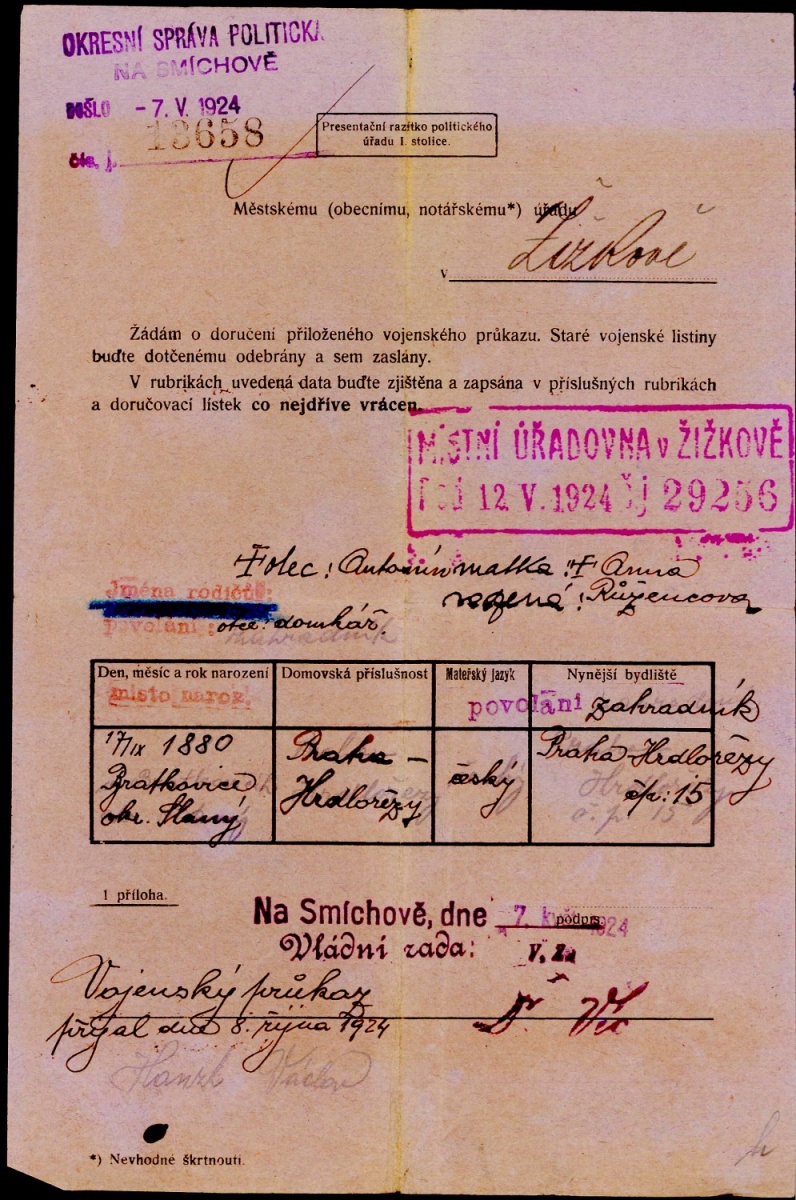 OKRESNÍ SPRÁVA POLITICKÁ
NA SMÍCHOVĚ
DOŠLO - 7. V. 1924
čís. j. 13658
Presentační razítko politického
úřadu I. stolice.
Městskému (obecnímu, notářskému*) úřadu
v Žižkově
Žádám o doručení přiloženého vojenského průkazu. Staré vojenské listiny
buďte dotčenému odebrány a sem zaslány.
V rubrikách uvedená data buďte zjištěna a zapsána v příslušných rubrikách
a doručovací lístek co nejdříve vrácen.
MÍSTNÍ ÚŘADOVNA v ŽIŽKOVĚ
12 V. 1924 čj 29256
Otec: Antonín matka: Anna
Jména rodičů: rozená: Růžencova
povolání: otce: domkář.
Den, měsíc a rok narození Domovská příslušnost Mateřský jazyk Nynější bydliště
místo narok. povolání zahradník
17/IX 1880 Praha – český Praha-Hrdlořezy
Bratkovice Hrdlořezy čp: 15
okr. Slaný
1 příloha.
Na Smíchově, dne 7. kvě 1924 podpis
Vládní rada: v. z.
Vojenský průkaz
přijal dne 8. října 1924 Dr
Hanzl Václav
*) Nevhodné škrtnouti.